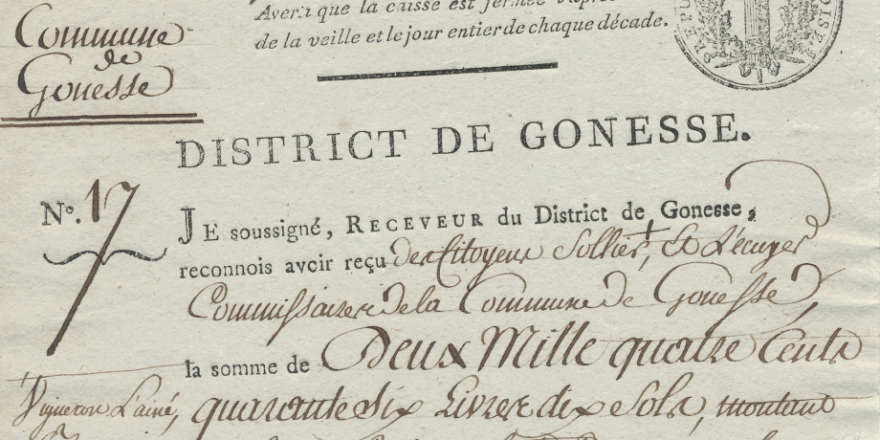 Commune
de
Gonesse
Avert que la caisse est fermée
de la veille et le jour entier de chaque décade.
DISTRICT DE GONESSE.
N°. 17
JE soussigné, RECEVEUR du District de Gonesse,
reconnois avoir reçu des Citoyens Sollier, Et Lécuyer
Commissaires de la Commune de Gonesse,
la somme de Deux Mille quatre Cents
Vigneron L'ainé, quarante six Livres dix Sols, montant